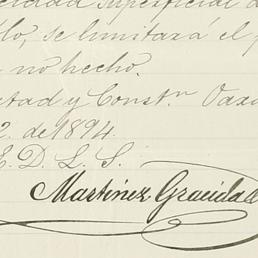 superficial d
lo, se limitará el p
no hecho.
tad y Constn Oaxa
2. de 1894.
E. D. L. S.
Martinez Gracida